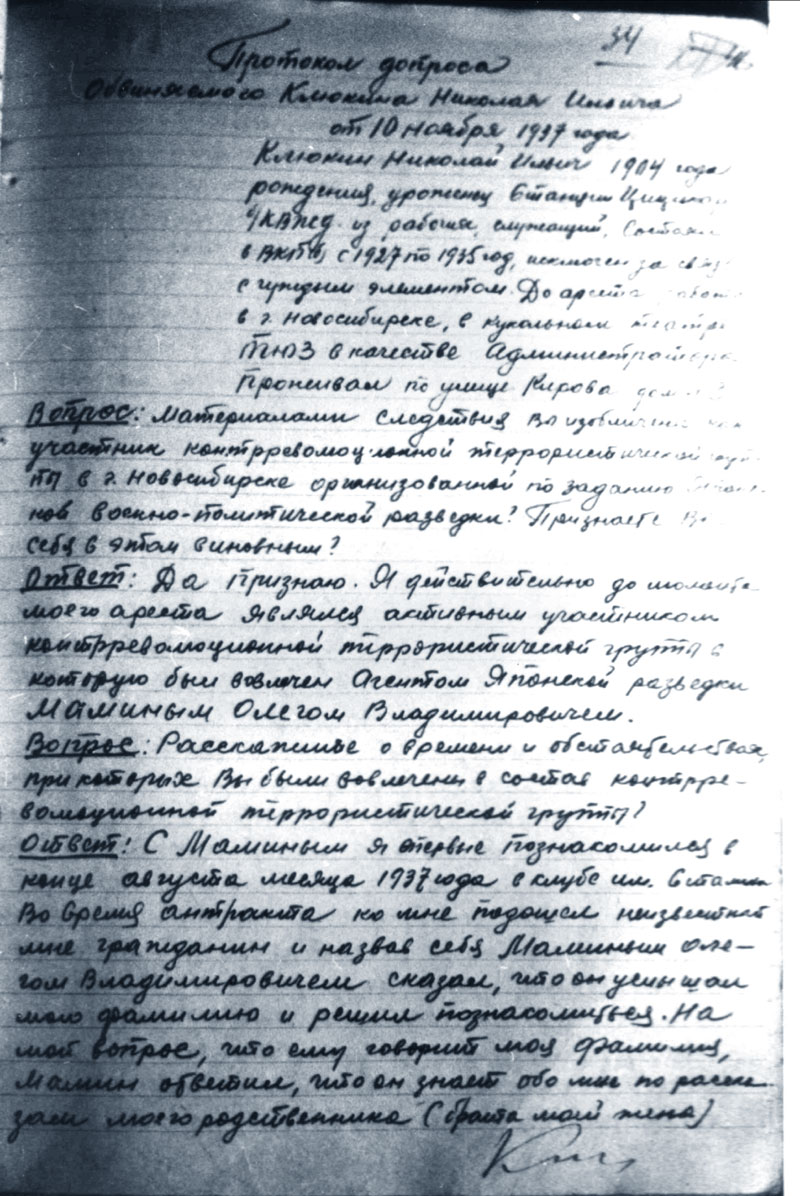 34
Протокол допроса
Обвиняемого Клюкина Николая Ильича
от 10 ноября 1937 года
Клюкин Николай Ильич 1904 года
рождения, уроженец станции
КВЖД. из рабочих, служащий, Состоял
в ВКП(б) с 1927 по 1935 год, исключен за связь
с чуждым элементом. До ареста
в г. Новосибирске, в кукольном театре
ТЮЗ в качестве Администратора
Проживал по улице Кирова дом
Вопрос: Материалами следствия Вы изобличены как
участник контрреволюционной террористической груп-
пы в г. Новосибирске организованной по заданию
нов военно-политической разведки? Признаете Вы
себя в этом виновным?
Ответ: Да признаю. Я действительно до момента
моего ареста являлся активным участником
контрреволюционной террористической группы в
которую был вовлечен Агентом Японской разведки
Маминым Олегом Владимировичем.
Вопрос: Расскажите о времени и обстоятельствах,
при которых Вы были вовлечены в состав контрре-
волюционной террористической группы?
Ответ: С Маминым я впервые познакомился в
конце августа месяца 1937 года в клубе им. Сталина
Во время антракта ко мне подошел неизвестный
мне гражданин и назвав себя Маминым Оле-
гом Владимировичем сказал, что он услышал
мою фамилию и решил познакомиться. На
мой вопрос, что ему говорит моя фамилия,
Мамин ответил, что он знает обо мне по расска
зам моего родственника (брата моей жены)